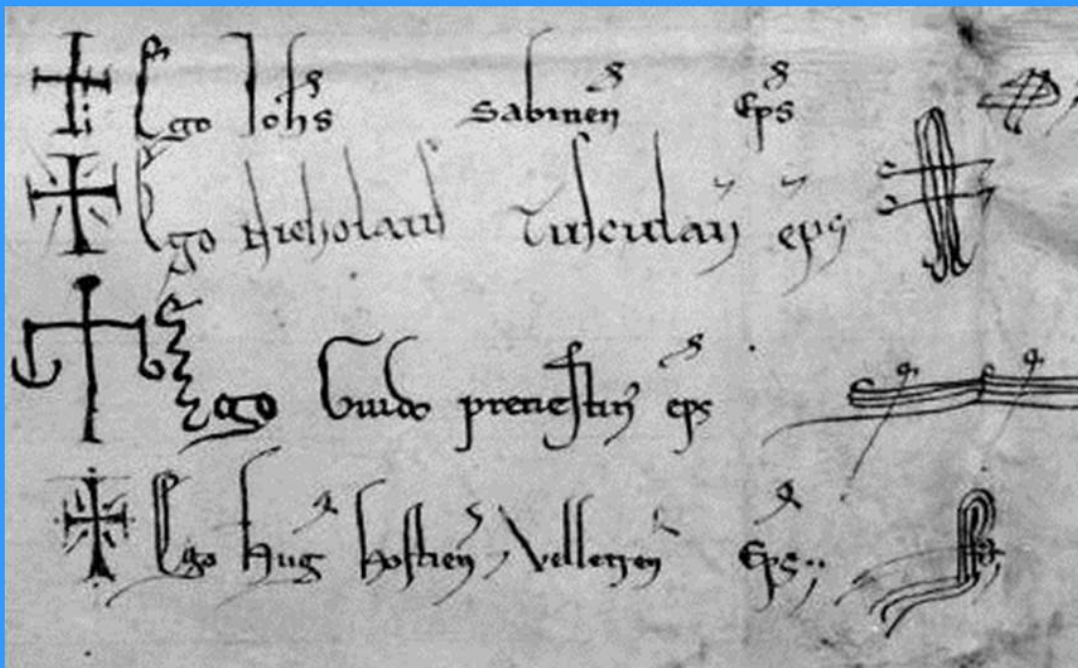 Ego Iohs Sabinen eps
Ego Nicholaus Tusculan eps
Ego Guido prenestin eps
Ego Hug hostien Velletren eps